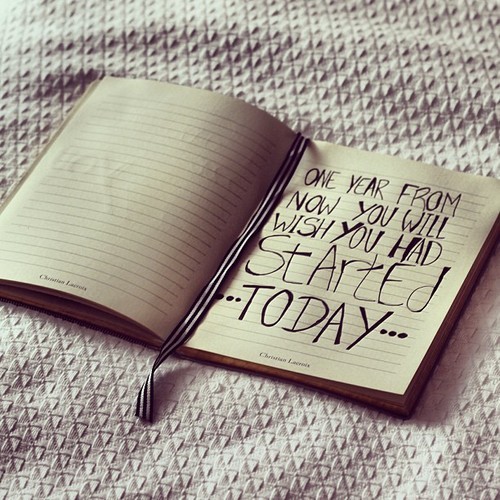 Christian Lacroix
ONE YEAR FROM
NOW YOU WILL
WISH YOU HAD
StArtEd
...TODAY...
Christian Lacroix